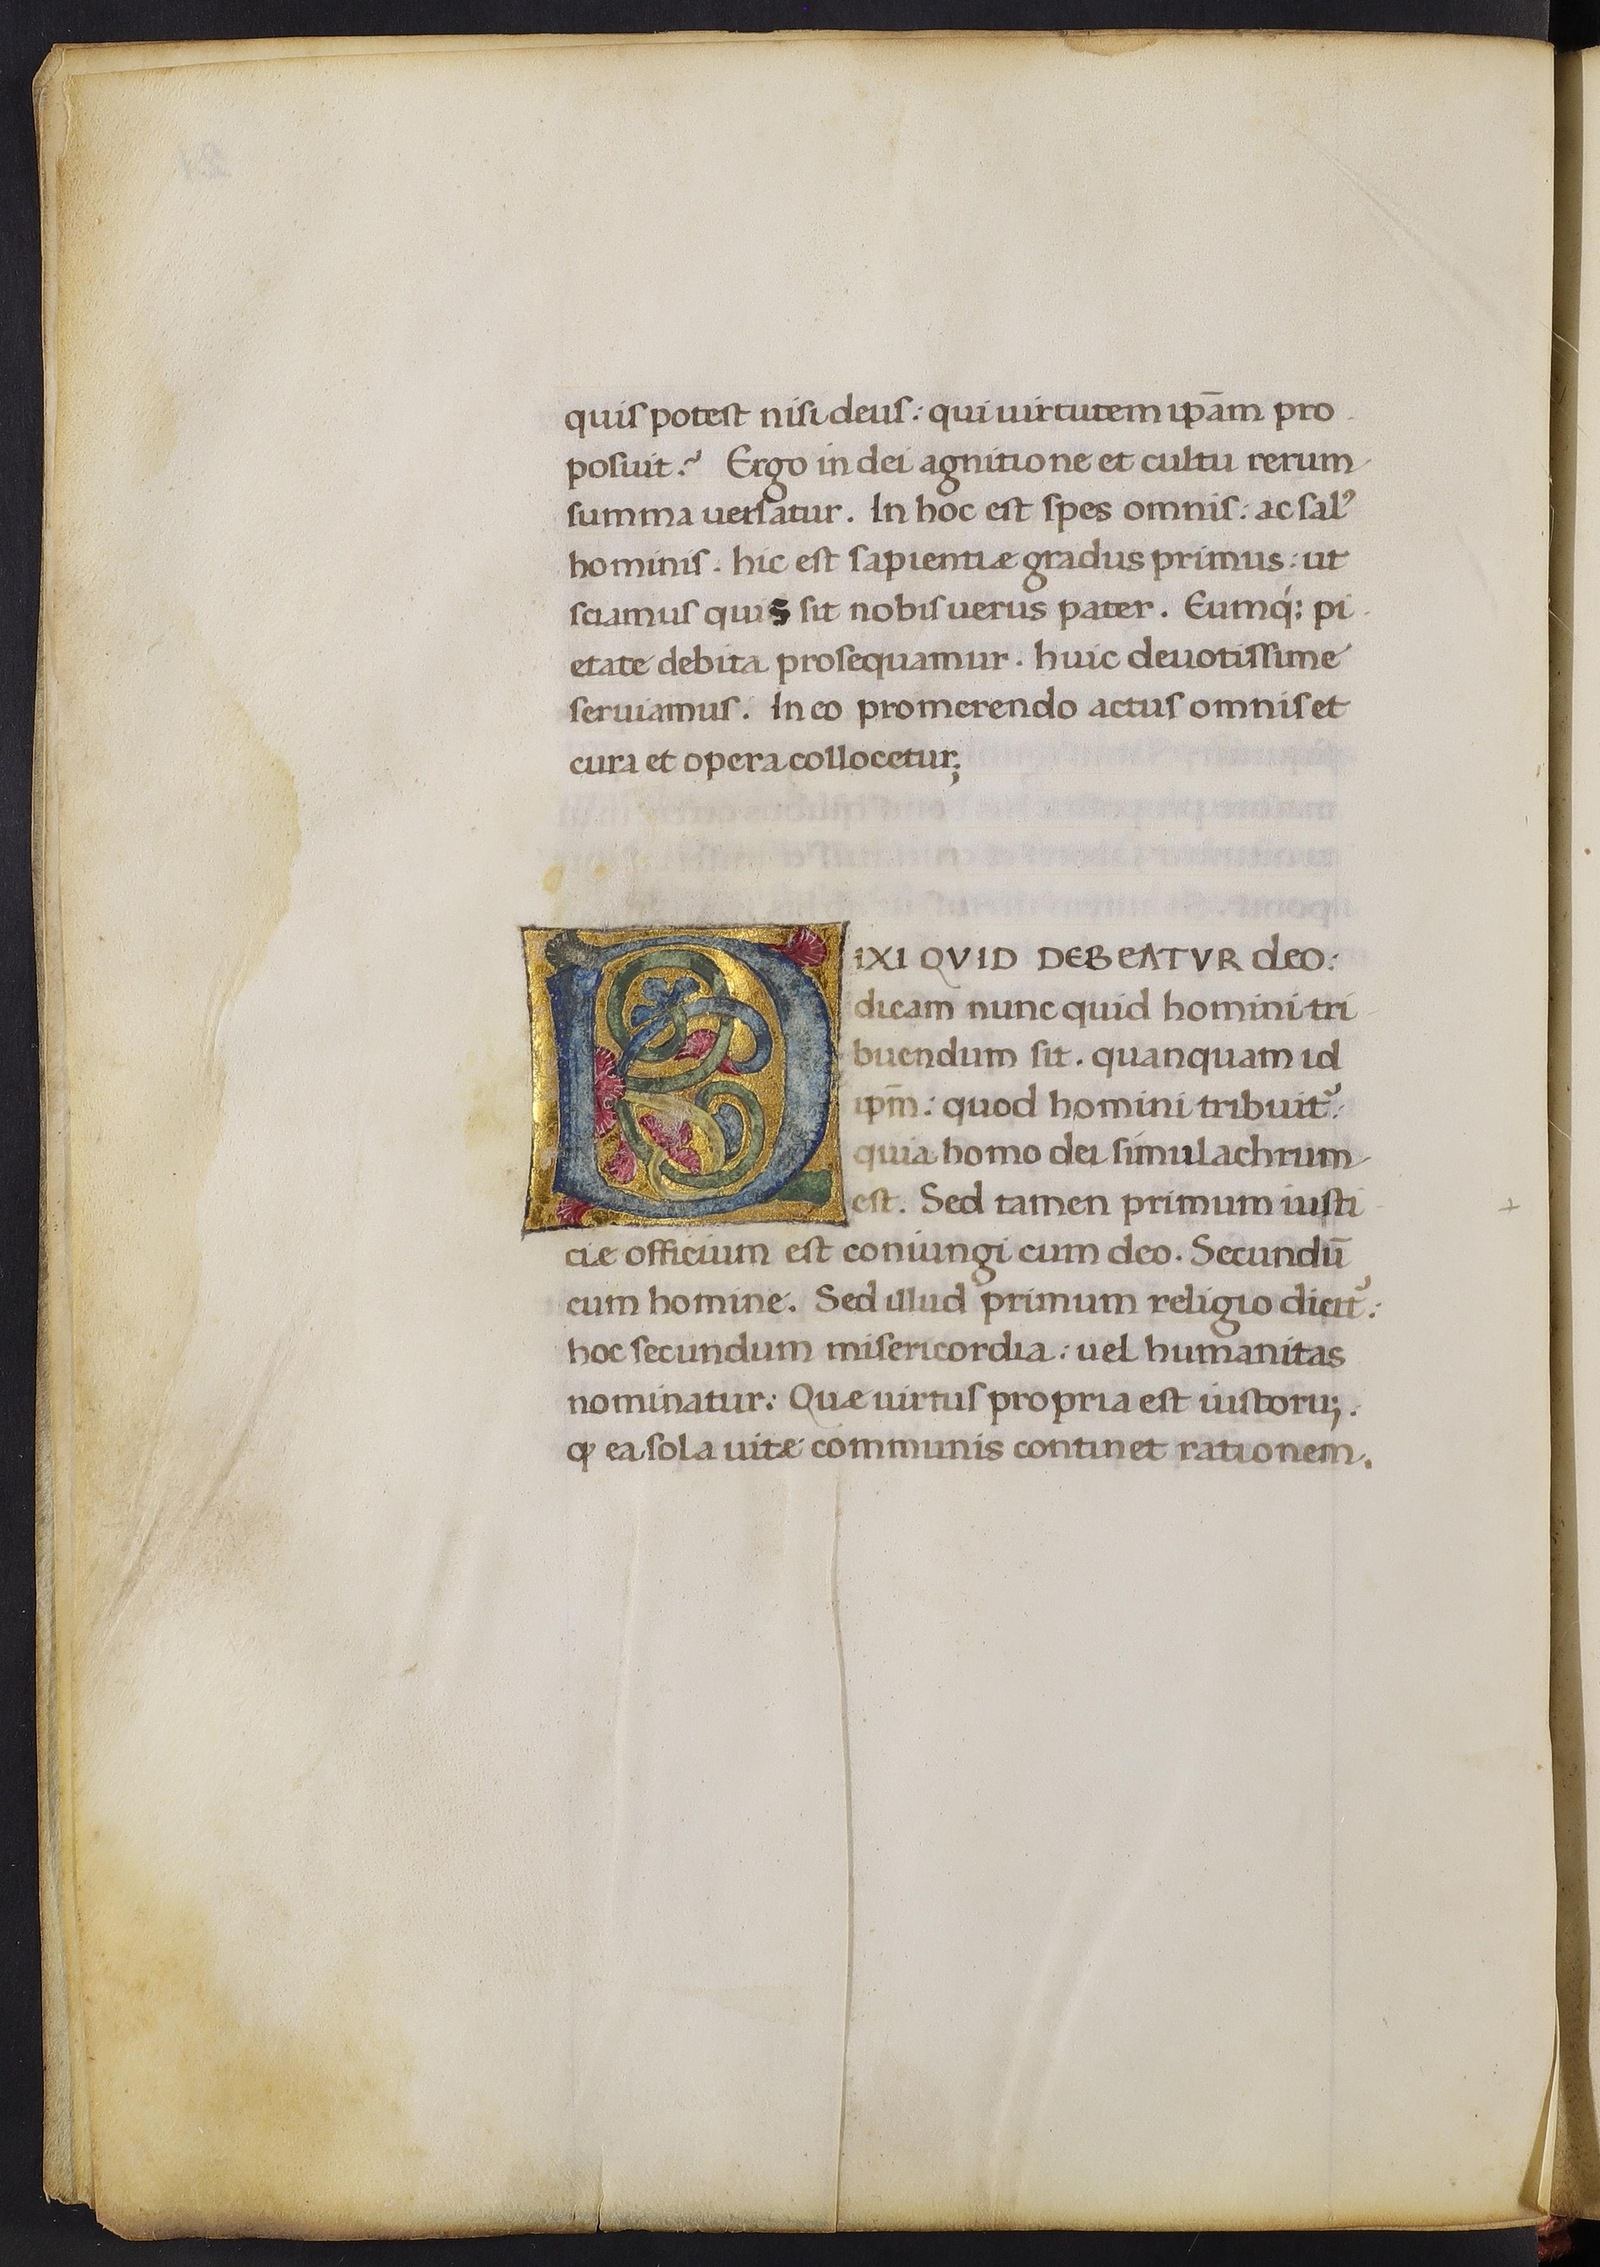 quis potest nisi deus: qui uirtutem ip̄am pro
posuit? Ergo in dei agnitione et cultu rerum
summa uersatur. In hoc est spes omnis: ac salꝰ
hominis. hic est sapientiæ gradus primus: ut
sciamus quis sit nobis uerus pater. Eumq́; pi
etate debita prosequamur. huic deuotissime
seruiamus. In eo promerendo actus omnis et
cura et opera collocetur;
DIXI QVID DEBEATVR deo:
dicam nunc quid homini tri
buendum sit. quanquam id
ip̄m: quod homini tribuitᷣ:
quia homo dei simulachrum
est. Sed tamen primum iusti
ciæ officium est coniungi cum deo. Secundū
cum homine. Sed illud primum religio dicitᷣ:
hoc secundum misericordia: uel humanitas
nominatur: Quæ uirtus propria est iustoru;.
ꝙ ea sola uitæ communis continet rationem.